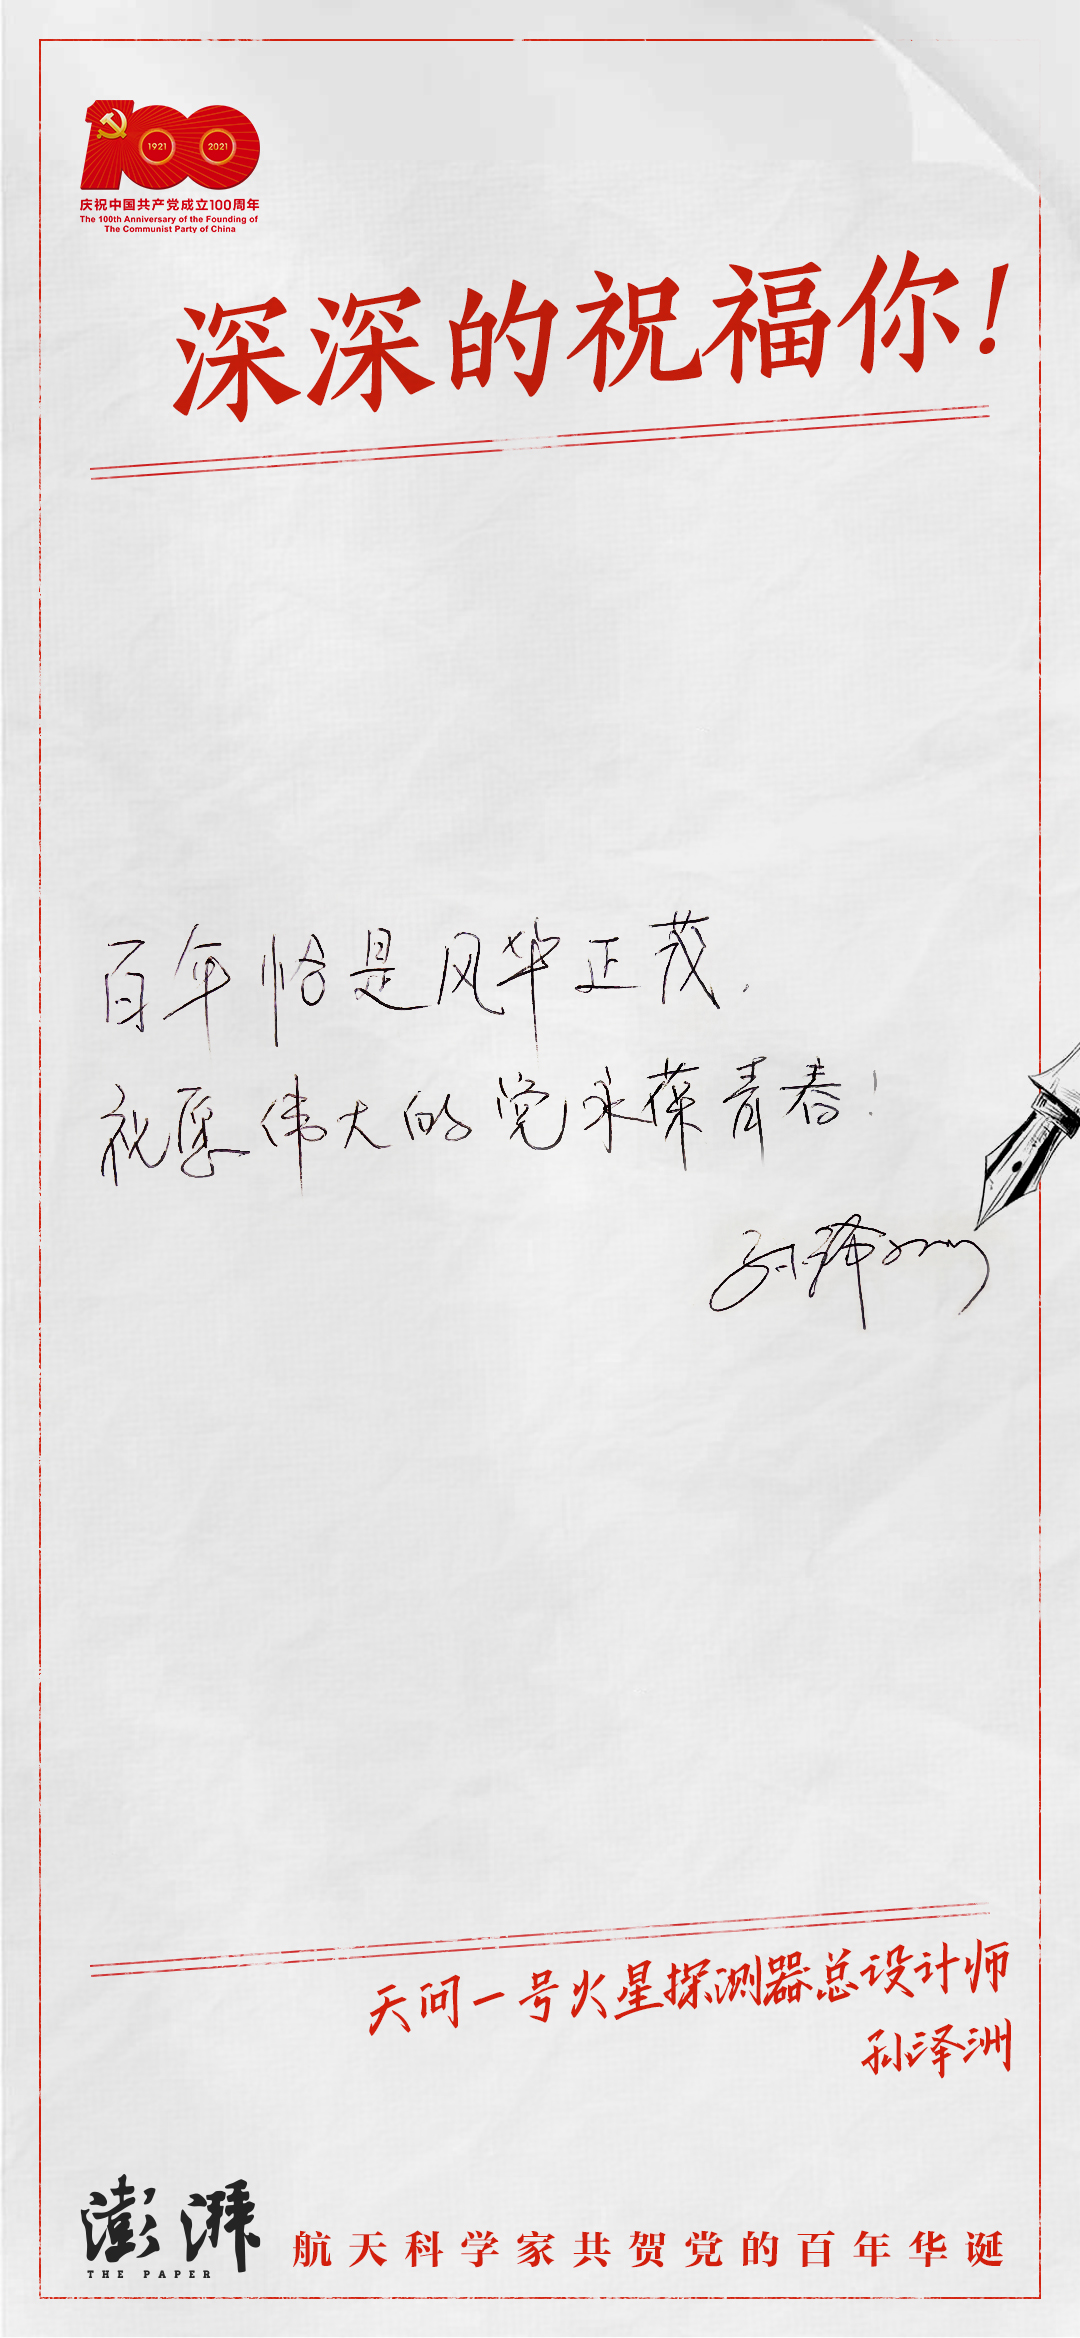 1921
2021
庆祝中国共产党成立100周年
The 100th Anniversary of the Founding of
The Communist Party of China
深深的祝福你!
百年恰是风华正茂,
祝愿伟大的党永葆青春!
孙泽洲
天问一号火星探测器总设计师
孙泽洲
澎湃
THE PAPER
航天科学家共贺党的百年华诞